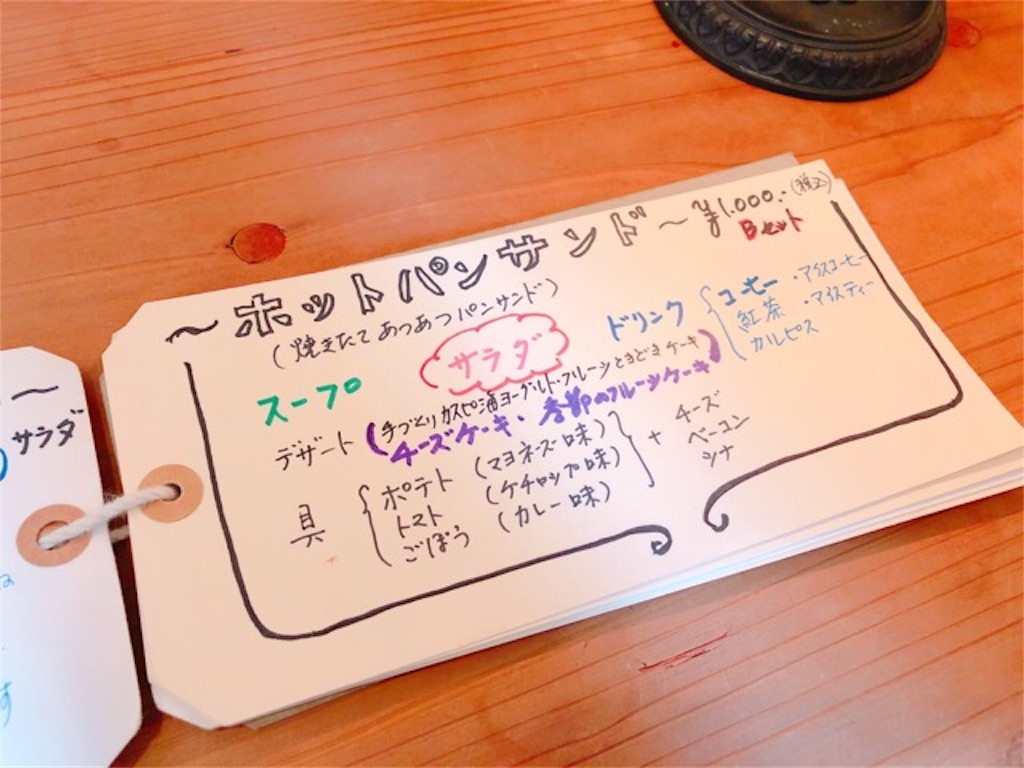 ～ホットパンサンド～ ¥1.000.-(税込)
Bセット
(焼きたてあつあつパンサンド)
スープ
サラダ
ドリンク
コーヒー ・アイスコーヒー
紅茶 ・アイスティー
カルピス
デザート
(手づくりカスピ海ヨーグルト・フルーツときどきケーキ)
チーズケーキ・季節のフルーツケーキ
具
ポテト (マヨネーズ味)
トマト (ケチャップ味)
ごぼう (カレー味)
+
チーズ
ベーコン
シナ
～
サラダ
す